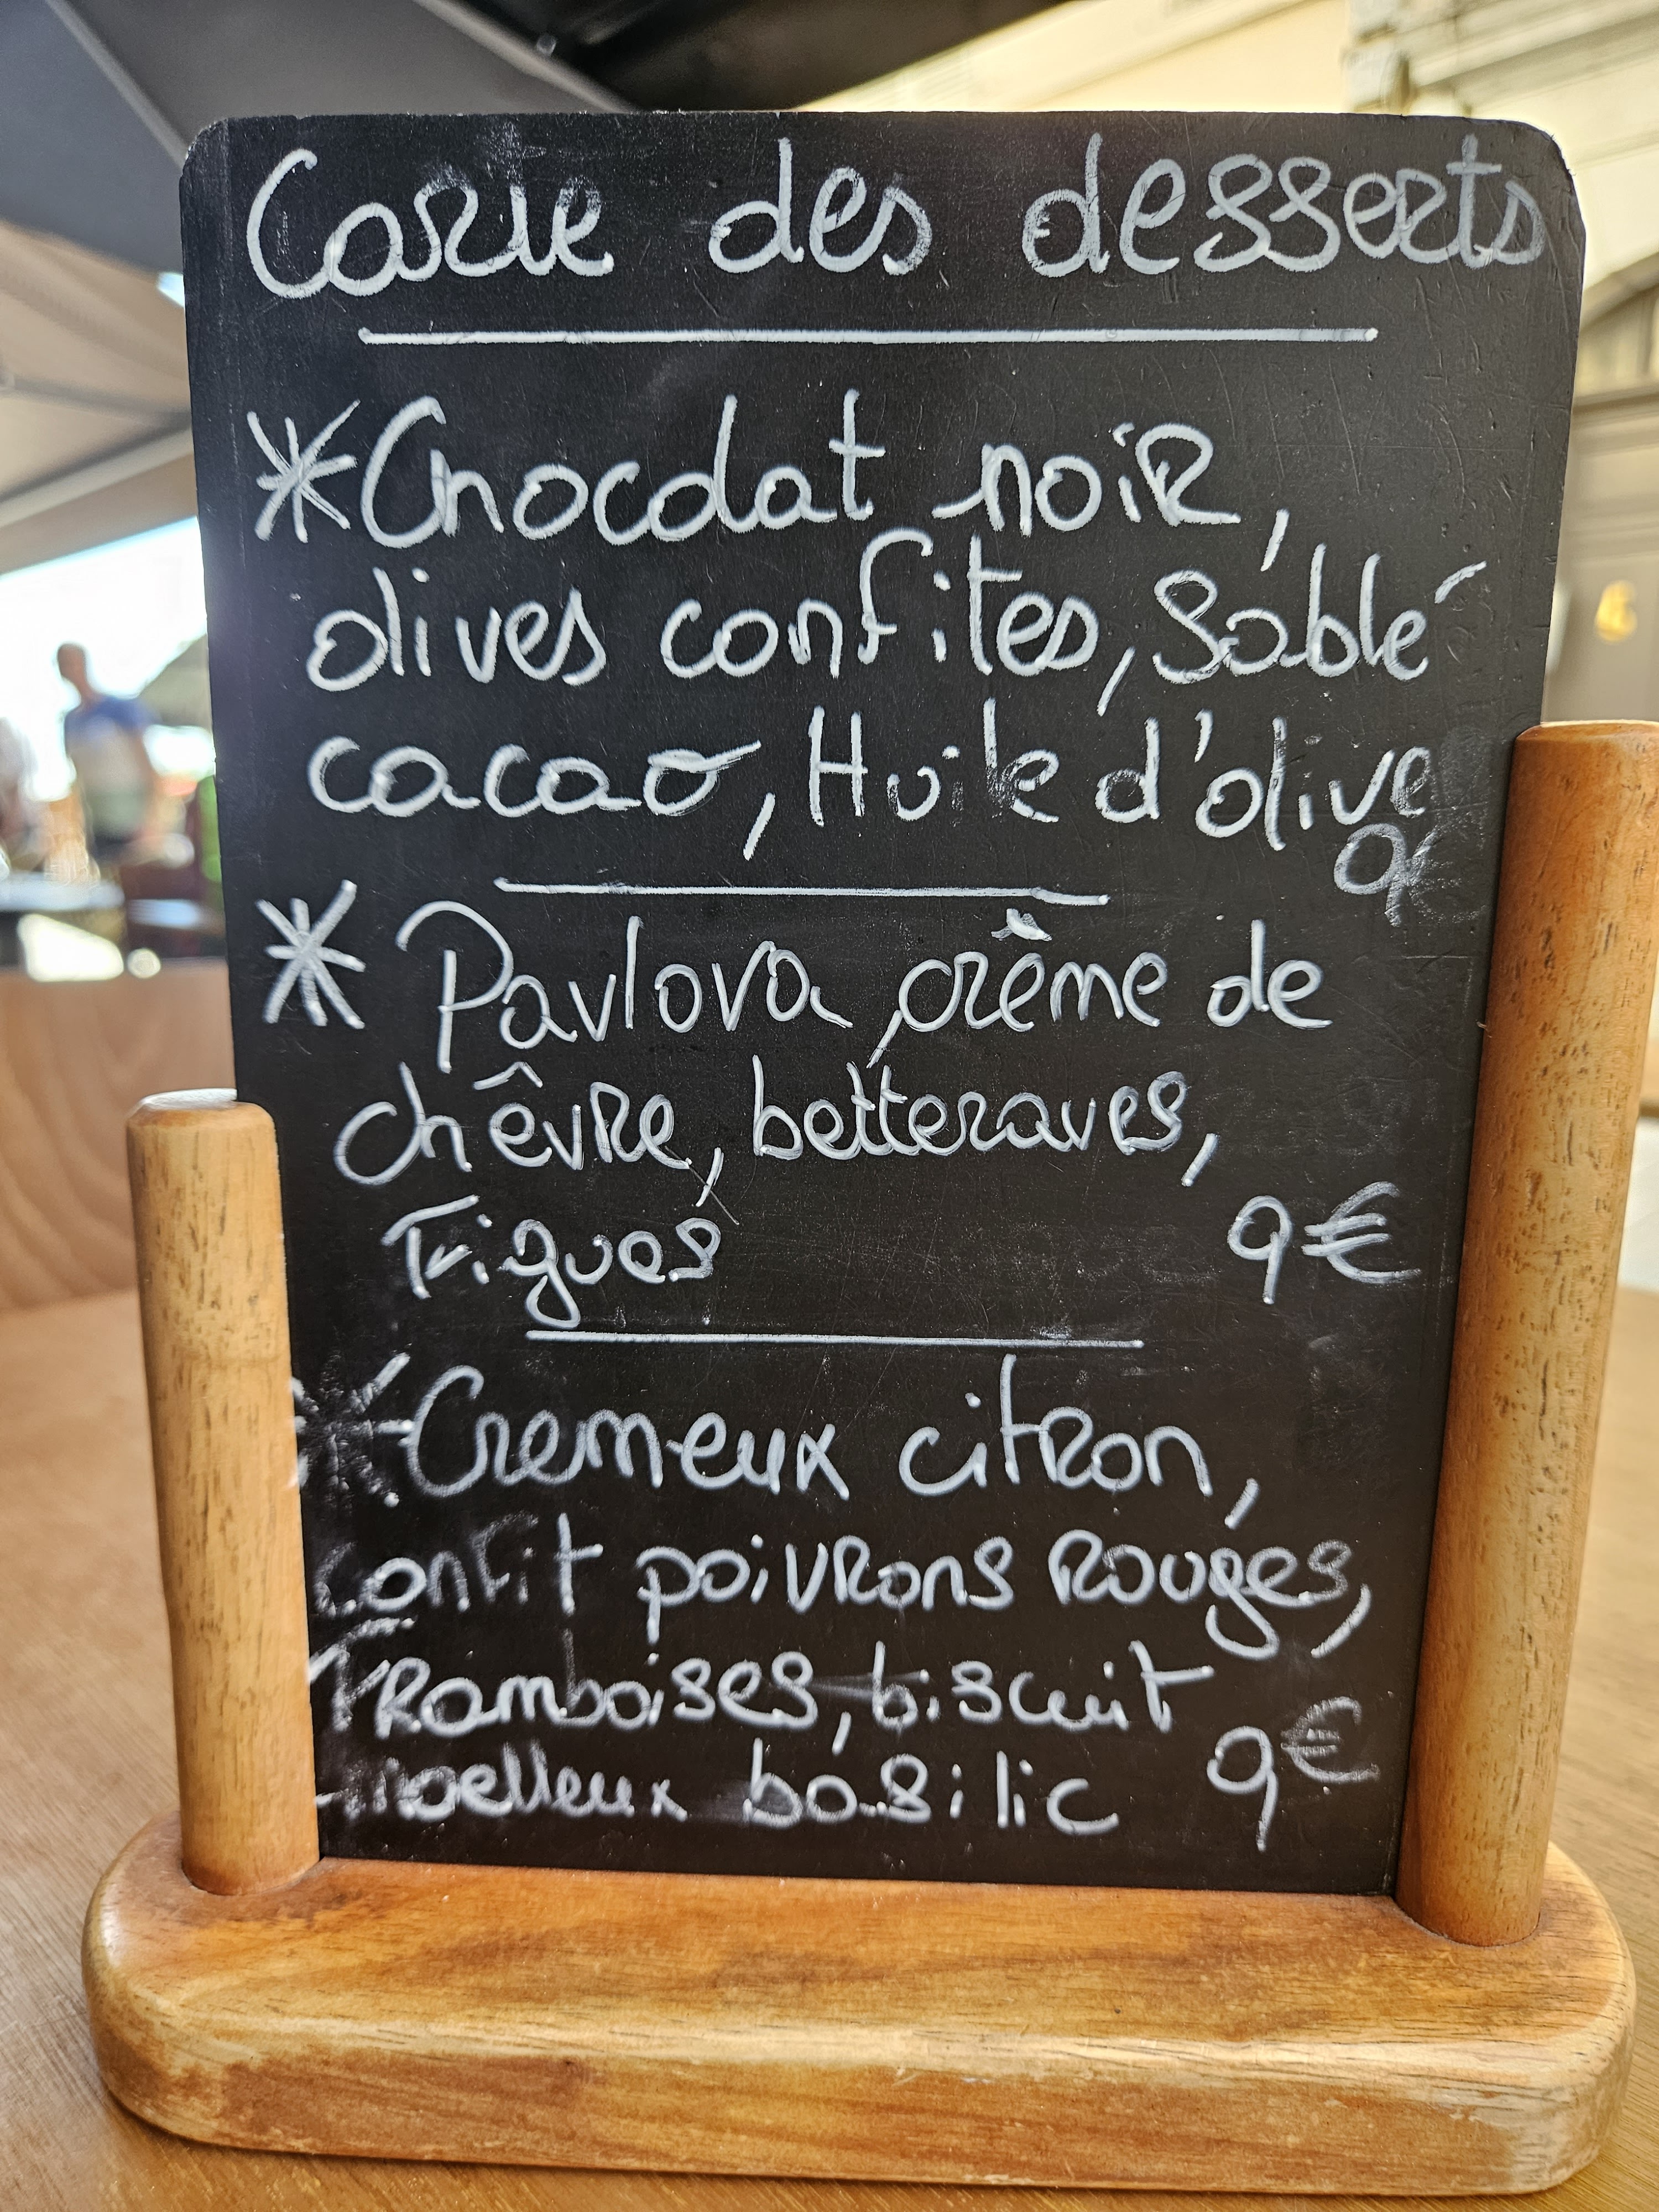 Carte des desserts
*Chocolat noir,
olives confites, sablé
cacao, Huile d'olive
9€
* Pavlova, crème de
chêvre, betteraves,
Figues 9€
*Cremeux citron,
confit poivrons rouges,
Framboises, biscuit
moelleux basilic 9€